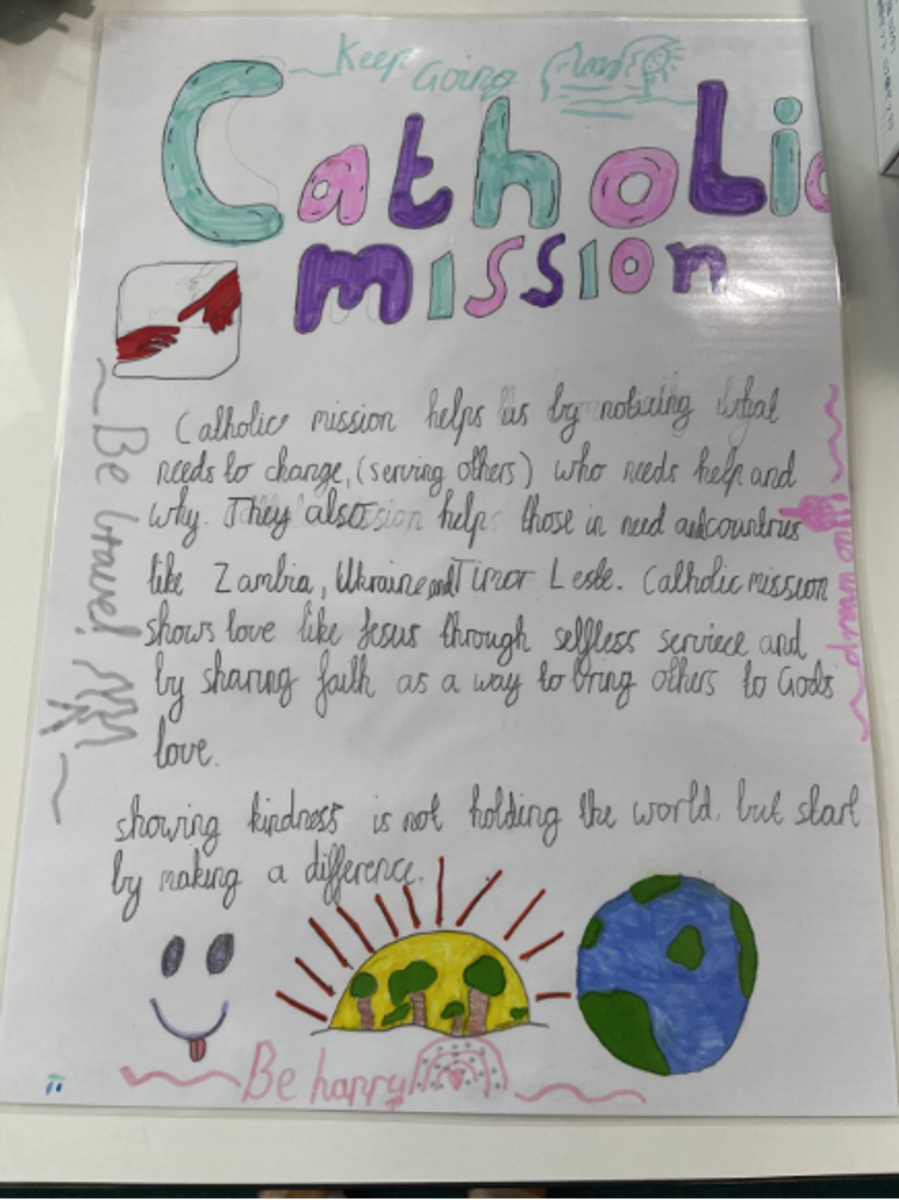 Keep Going
Catholic
mission
Catholic mission helps us by noticing what
needs to change, (serving others) who needs help and
why. They also help those in need and countries
like Zambia, Ukraine and Timor Leste. Catholic mission
shows love like Jesus through selfless service and
by sharing faith as a way to bring others to Gods
love.
showing kindness is not holding the world, but start
by making a difference.
Be brave!
dream on!
Be happy